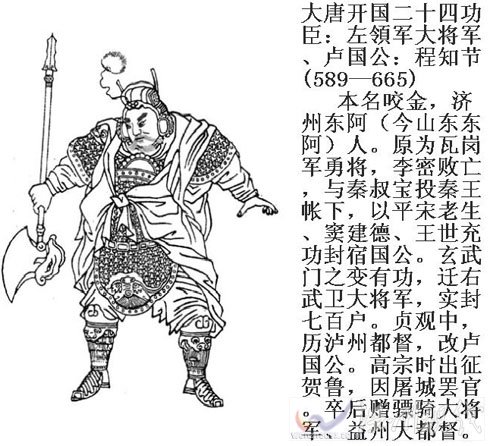 大唐开国二十四功
臣：左領军大将军
、卢国公：程知节
(589—665)
本名咬金，济
州东阿（今山东东
阿）人。原为瓦岗
军勇将，李密败亡
，与秦叔宝投秦王
帐下，以平宋老生
、窦建德、王世充
功封宿国公。玄武
门之变有功，迁右
武卫大将军，实封
七百户。贞观中，
历泸州都督，改卢
国公。高宗时出征
贺鲁，因屠城罢官
。卒后赠骠骑大将
军、益州大都督。